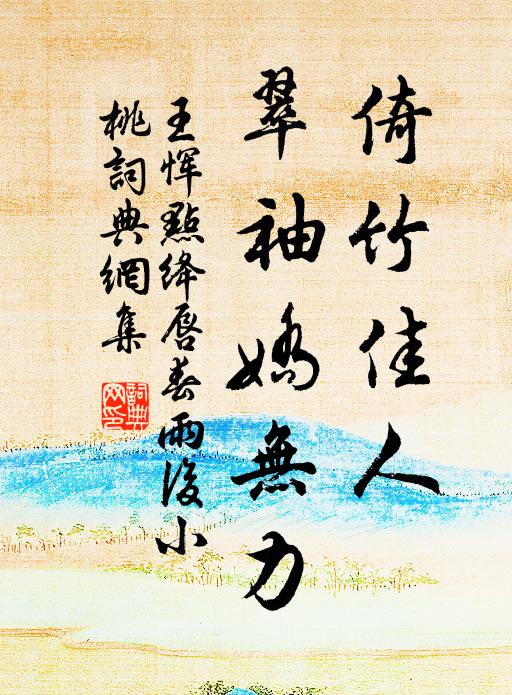 倚竹佳人
翠袖嬌無力
王惲點絳唇春雨後小
桃詞典網集
詞典
网印